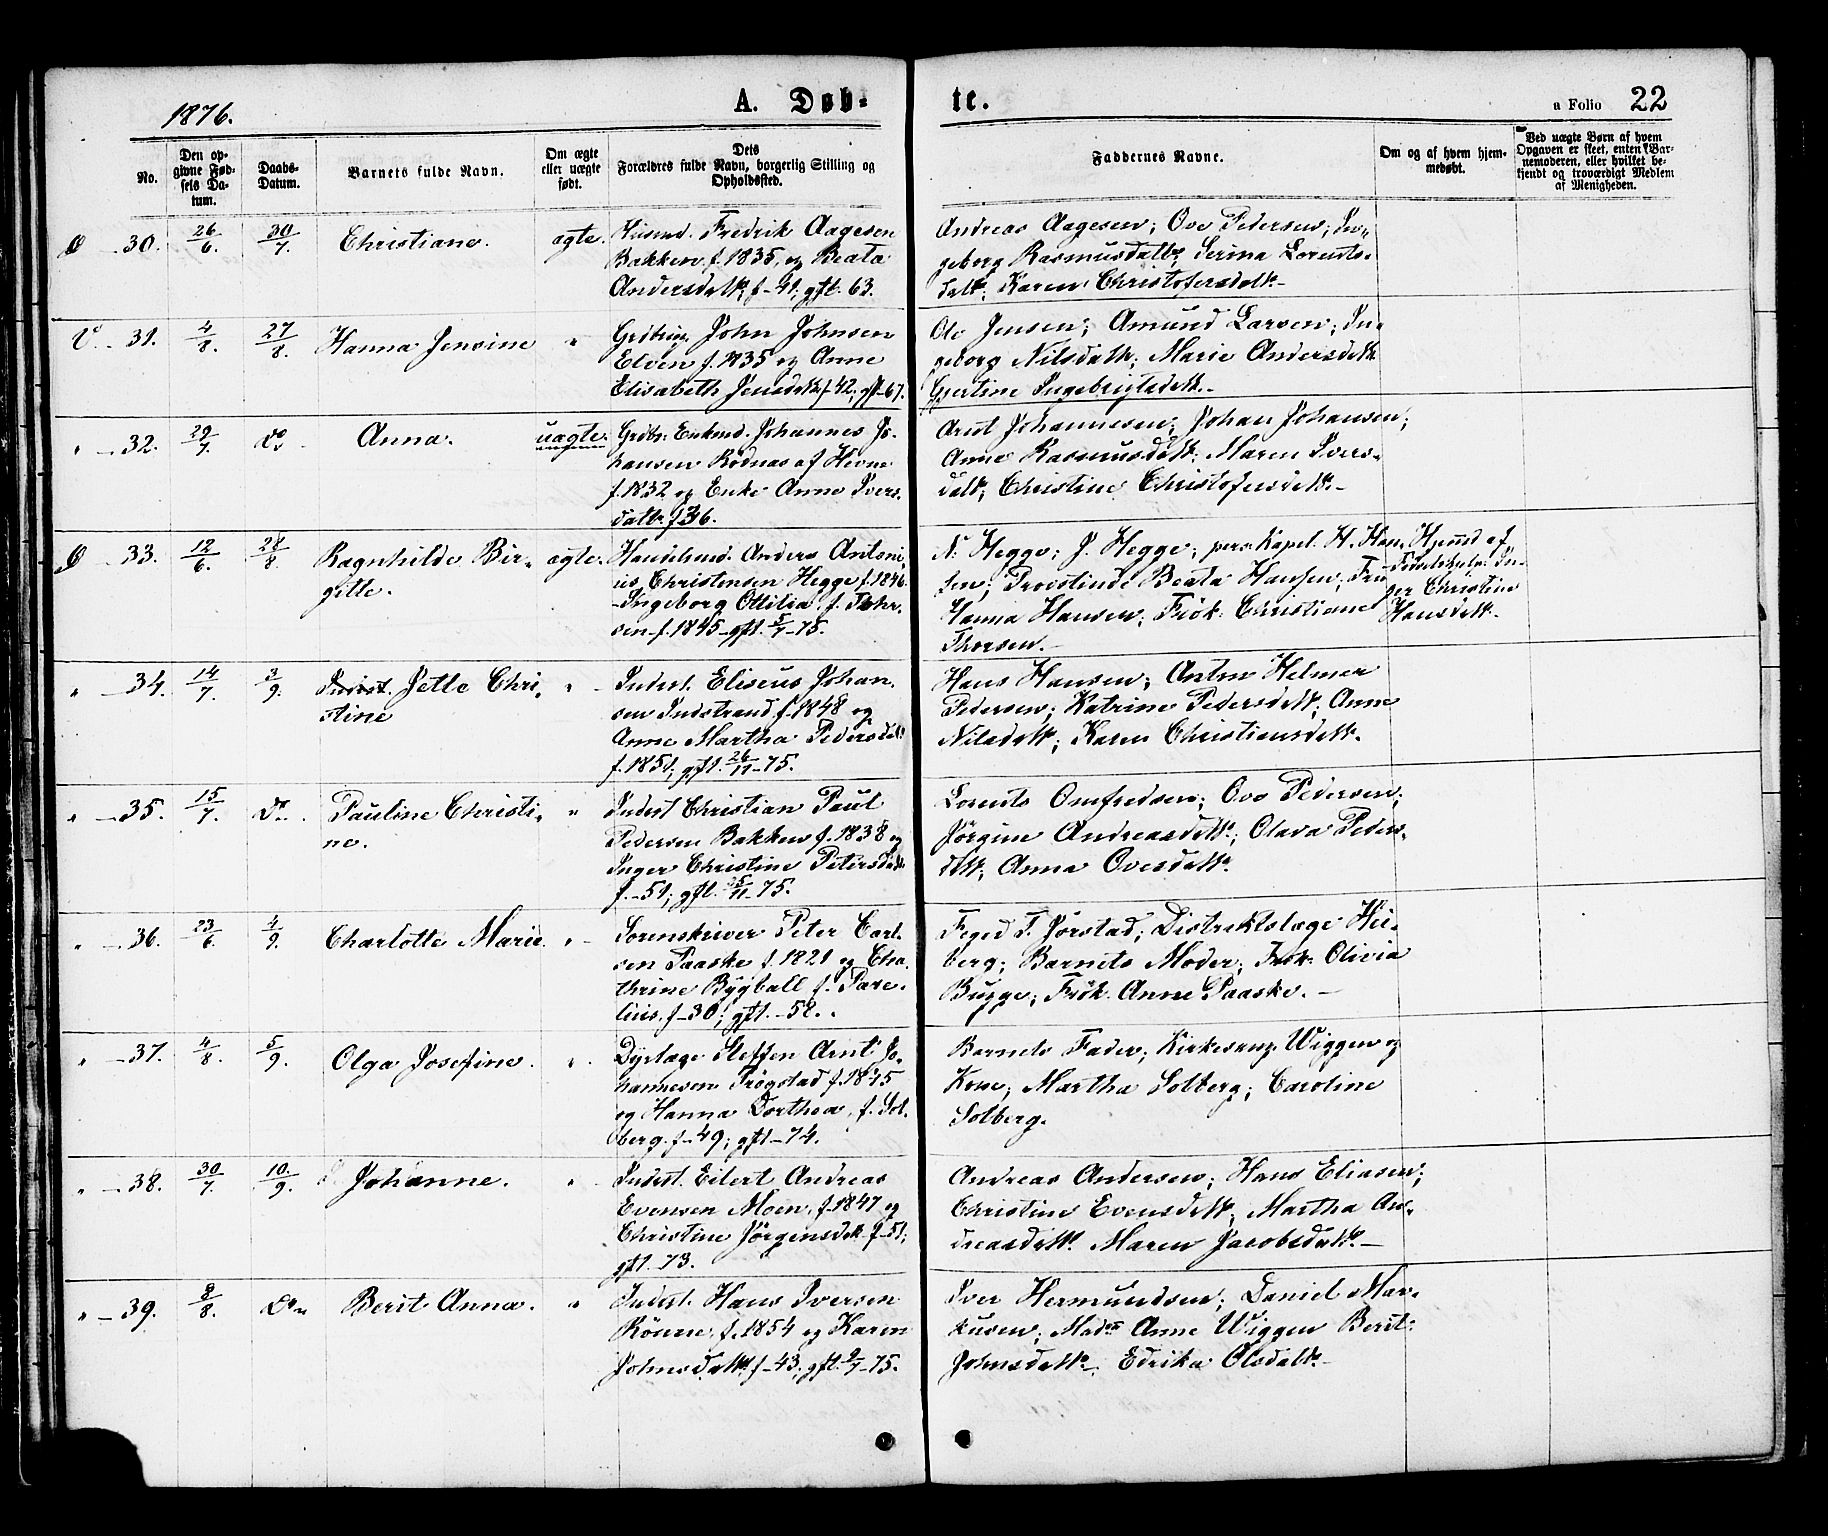 1876.
A. Døb-
te.
a Folio 22
No.
Den op-
givne Fød-
sels Da-
tum.
Daabs-
Datum.
Barnets fulde Navn.
Om ægte
eller uægte
født.
Dets
Forældres fulde Navn, borgerlig Stilling og
Opholdssted.
Faddernes Navne.
Om og af hvem hjem-
medøbt.
Ved uægte Børn af hvem
Opgaven er skeet, enten Bar-
nemoderen, eller hvilket be-
kjendt og troværdigt Medlem
af Menigheden.
Ø - 30. 26/6. 30/7. Christiane. ægte.
Husmd. Fredrik Aagesen
Bakken, f. 1835, og Beata
Andersdatt., f - 41; gft. 63.
Andreas Aagesen; Ove Pedersen; In-
geborg Rasmusdatt; Serina Lorents-
datt; Karen Christofersdatt. -
V. - 31. 4/8. 27/8. Hanna Jensine "
Grdbrug. John Johnsen
Elven f. 1835 og Anne
Elisabeth Jensdatt. f. 42; gft - 67.
Ole Jensen; Amund Larsen; In-
geborg Nilsdatt; Marie Andersdatt.
Gjertine Ingebrigtsdatt. -
" - 32. 29/7. do. Anna. uægte.
Grdbr. Enkmd. Johannes Jo-
hansen Rødnas af Hevne
f. 1832 og Enke Anne Ivers-
datt. f 36.
Arnt Johannesen; Johan Johansen;
Anne Rasmusdatt; Maren Ivers-
datt; Christine Christofersdatt. -
Ø - 33. 12/6. 28/8. Ragnhilde Bir-
gitte. ægte.
Handelsmd. Anders Antoni-
us Christensen Hegge f. 1846.
- Ingeborg Ottilia f. Thor-
sen - f. 1845 - gft. 5/7 - 75.
N. Hegge; J. Hegge; pers. Kapel. H. Han-
sen; Provstinde Beata Hansen; Fru
Hanna Hansen; Frök. Christiane
Thorsen. -
Hjemd af
Inger Christine
Hansdatt.
" - 34. 14/7. 3/9. Jette Chri-
stine " -
Inderst. Eliseus Johan-
sen Indstrand f. 1848 og
Anne Martha Pedersdatt
f. 1851; gft. 26/11 - 75.
Hans Hansen; Anton Helmer
Pedersen; Katrine Pedersdatt; Anne
Nilsdatt; Karen Christiansdatt.
" - 35. 15/7. do. Pauline Christi-
ne. "
Inderst Christian Paul
Pedersen Bakken f. 1838 og
Inger Christine Petersdatt
f. - 51; gft. 5/11 - 75.
Lorents Omfredsen; Ove Pedersen;
Jørgine Andreasdatt; Olava Peders-
datt; Anna Ovesdatt.
" - 36. 23/6. 4/9. Charlotte Marie. " -
Sorenskriver Peter Carl-
sen Paaske f. 1821 og Cha-
thrine Bygball f. Pare-
lius. f - 30; gft. - 52. .
Foged T. Jørstad; Distriktslæge Hil-
berg; Barnets Moder; Frök. Olivia
Bugge; Frök. Anne Paaske. -
" - 37. 4/8. 5/9. Olga Josefine. " .
Dyrlæge Steffen Arnt Jo-
hannesen Trøgstad f. 1845
og Hanna Dorthea, f. Sol-
berg. f - 49; gft - 74.
Barnets Fader; Kirkesang. Wiggen og
Kone; Martha Solberg; Caroline
Solberg.
" - 38. 30/7. 10/9. Johanne. " -
Inderst. Eilert Andreas
Evensen Moen, f. 1847 og
Christine Jörgensdatt. f - 51;
gft. - 73.
Andreas Andersen; Hans Eliasen;
Christine Evensdatt; Martha An-
dreasdatt. Maren Jacobsdatt. -
" - 39. 8/8. do. Berit Anna. "
Inderst. Hans Iversen
Rönne. f. 1854 og Karen
Johnsdatt. f - 43, gft. 9/7 - 75.
Iver Hermundsen; Daniel Mar-
kusen; Made Anne Wiggen Berit
Johnsdatt. Edrika Olsdatt. -